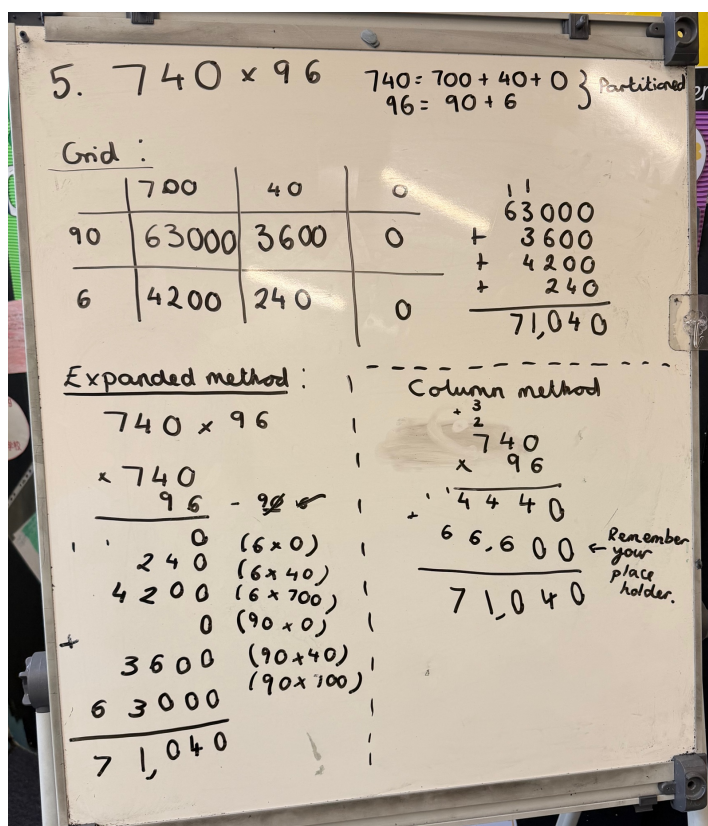 5. 740 × 96
740 = 700 + 40 + 0 } Partitioned
96 = 90 + 6
Grid :
700 40 0
90 63000 3600 0
6 4200 240 0
1 1
63000
+ 3600
+ 4200
+ 240
71,040
Expanded method :
740 × 96
× 740
96
0 (6 × 0)
240 (6 × 40)
4200 (6 × 700)
0 (90 × 0)
+
3600 (90 × 40)
63000 (90 × 700)
71,040
Column method
+ 3
2
740
× 96
4440
+
66,600 ← Remember your place holder.
71,040